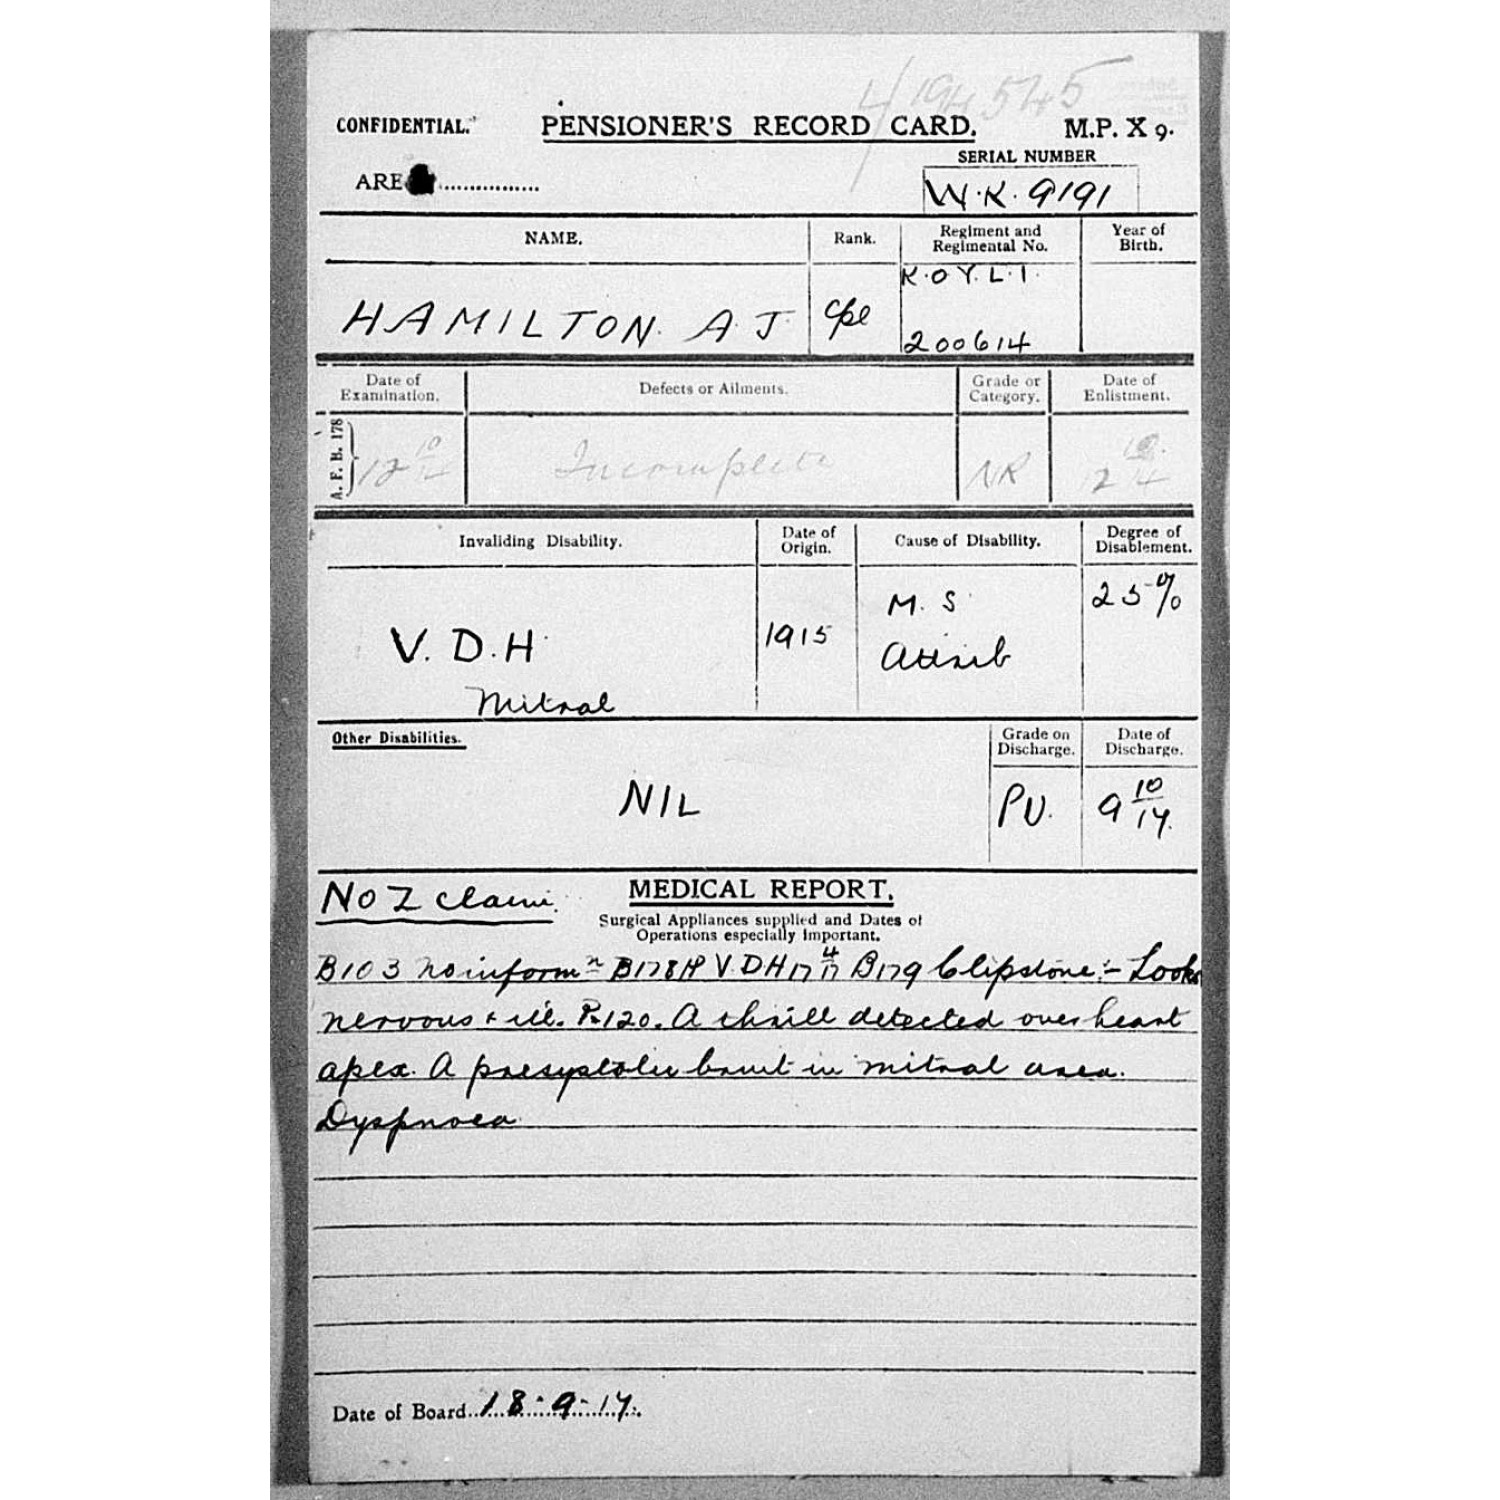 4/194545
CONFIDENTIAL. PENSIONER'S RECORD CARD. M.P. X 9.
SERIAL NUMBER
ARE ................ W.K. 9191
NAME. Rank. Regiment and Regimental No. Year of Birth.
K.O.Y.L.I.
HAMILTON. A.J. Cpl
200614
Date of Examination. Defects or Ailments. Grade or Category. Date of Enlistment.
A. F. B. 178 Incomplete NR
Invaliding Disability. Date of Origin. Cause of Disability. Degree of Disablement.
M. S 25%
V. D. H. 1915 Attrib
Mitral
Other Disabilities. Grade on Discharge. Date of Discharge.
NIL PU. 9 10/17.
No Z claim. MEDICAL REPORT.
Surgical Appliances supplied and Dates of
Operations especially important.
B103 no informn B178 V.D.H 17 4/17 B179 Clipstone:- Looks
nervous & ill. P.120. A thrill detected over heart
apex. A presystolic bruit in mitral area.
Dyspnoea.
Date of Board..18-9-17..